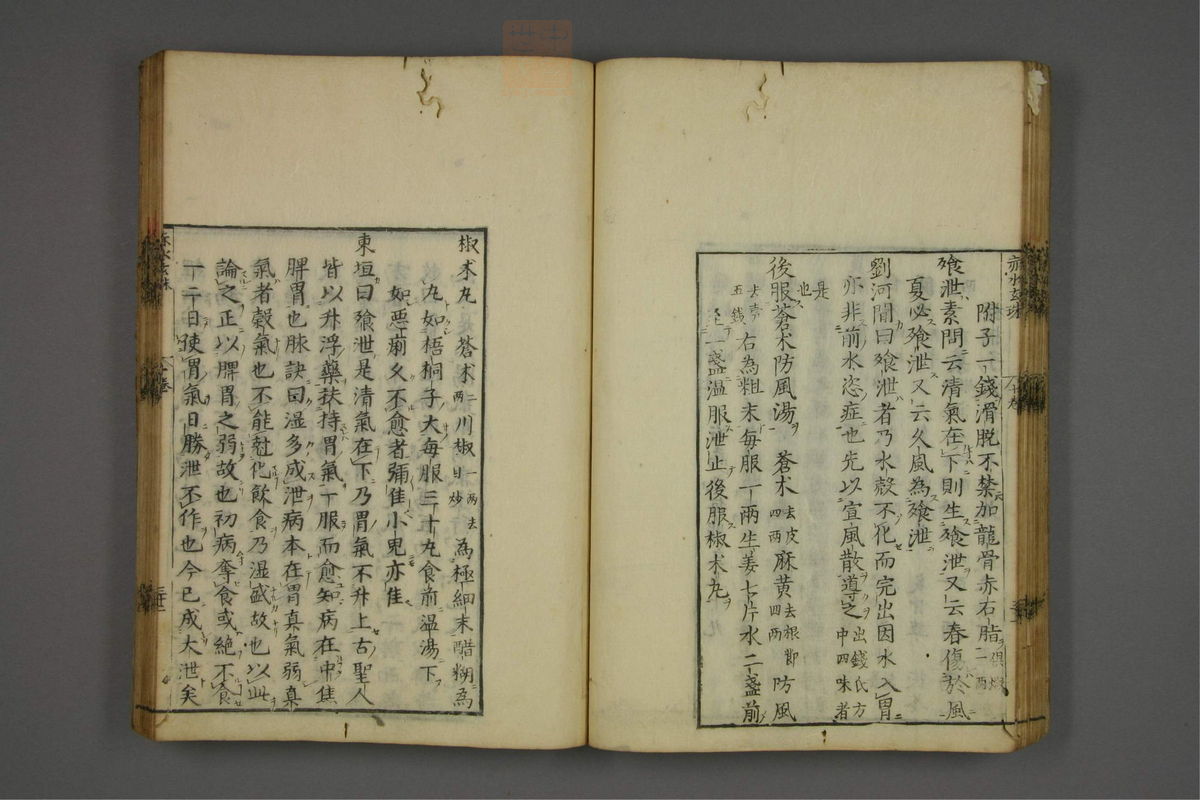 附子一錢滑脫不禁加龍骨赤石脂一兩
飱泄素問云清氣在下則生飱泄又云春傷於風
夏必飱泄又云久風為飱泄
劉河間曰飱泄者乃水穀不化而完出因水入胃
亦非前水恣症也先以宣風散導之出錢氏方中四味者
是也
後服蒼朮防風湯 蒼朮去皮四兩麻黃去根節四兩防風
去蘆五錢右為粗末每服一兩生姜七片水二盞煎
至一盞溫服泄止後服椒朮丸
椒朮丸 蒼朮二兩川椒一兩去目炒為極細末醋糊為
丸如梧桐子大每服三十丸食前溫湯下
如惡痢久不愈者彌佳小兒亦佳
東垣曰飱泄是清氣在下乃胃氣不升上古聖人
皆以升浮藥扶持胃氣一服而愈知病在中焦
脾胃也脉訣曰湿多成泄病本在胃真氣弱真
氣者穀氣也不能尅化飲食乃湿盛故也以此
論之正以脾胃之弱故也初病奪食或絕不食
一二日使胃氣日勝泄不作也今已成大泄矣